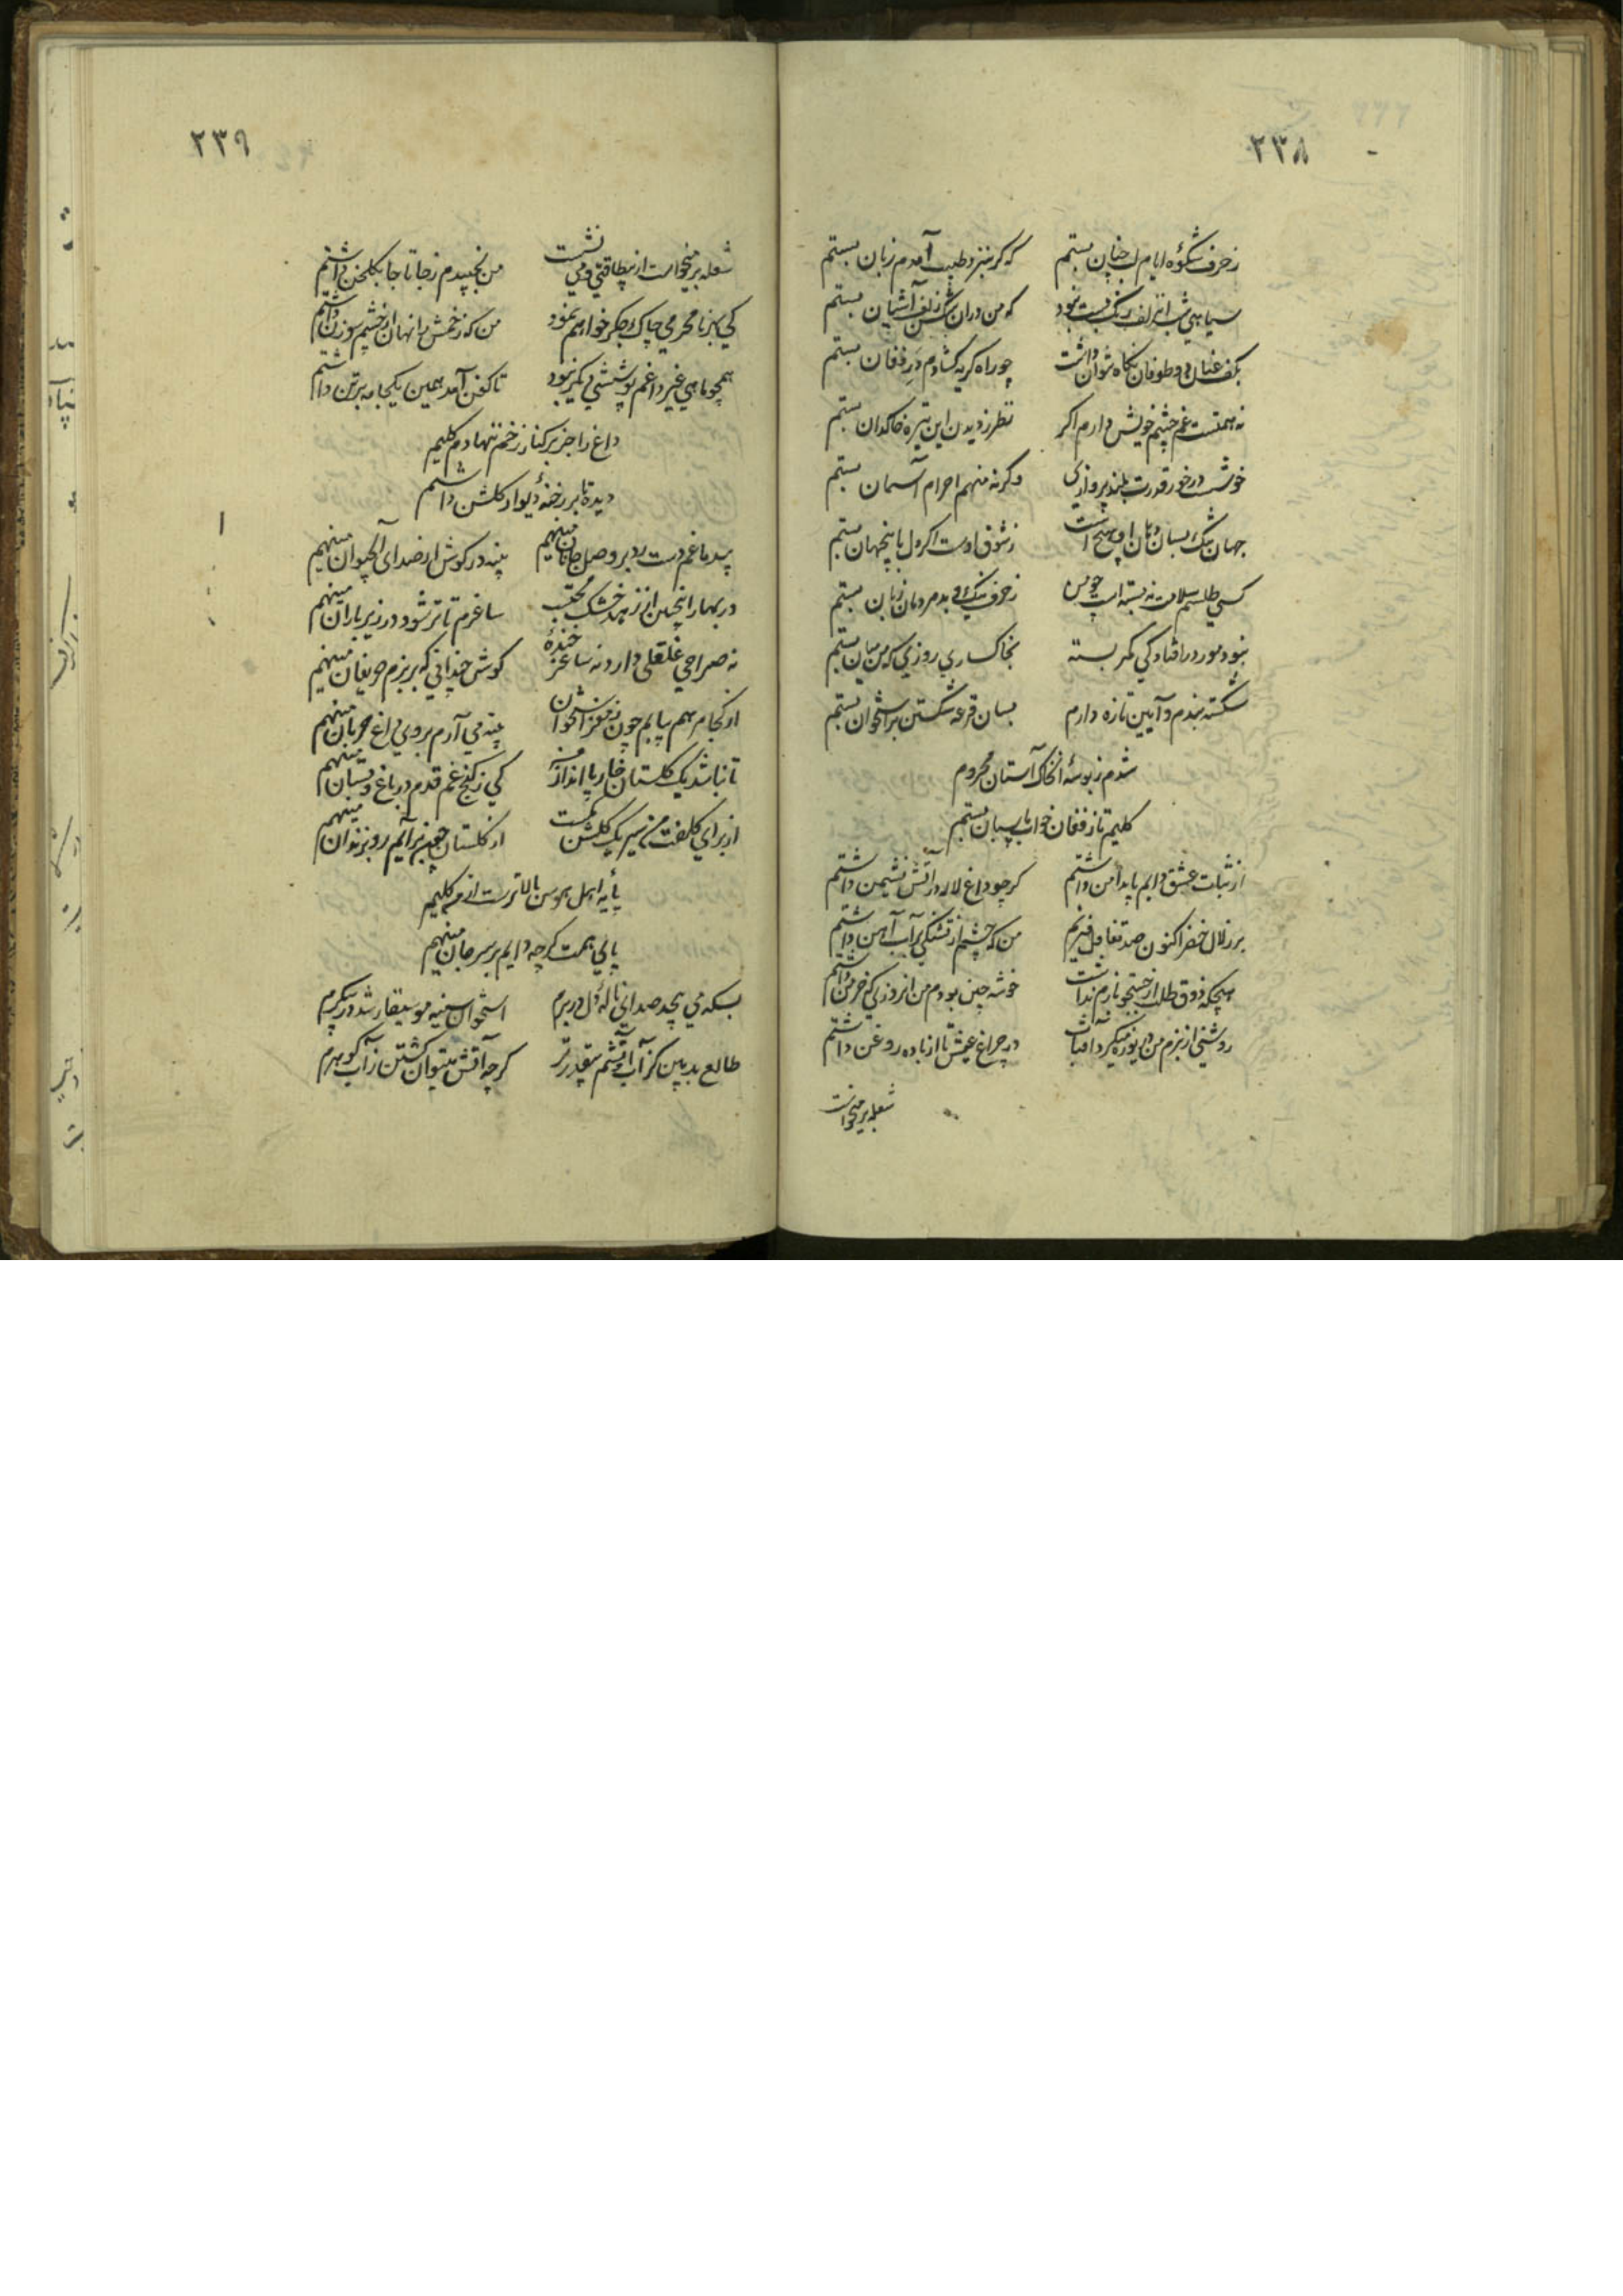 ۲۳۸
ز حرف شکوه ایام لب چنان بستم که کر بنزد طبیب آمدم زبان بستم
سیاهی شب از زلف رنک بست نبود که من دران شکن زلف آشیان بستم
بکف عنان دو طوفان نکاه نتوان داشت چو راه کریه کشادم در فغان بستم
نه همتست غم چشم خویش دارم اکر نظر ز دیدن این تیره خاکدان بستم
خوشست در خور قدرت بلند پروازی وکرنه منهم احرام آسمان بستم
جهان تنک بسان دهان او هیچ است ز شوق اوست اکر دل باینجهان بستم
کسی طلسم سلامت نه بسته است چو من ز حرف نیک و بد مردمان زبان بستم
نبود مور در افتادکی کمر بسته بخاکساری روزی که من میان بستم
شکسته بندم و آیین تازه دارم بسان قرعه شکستن بر استخوان بستم
شدم ز بوسه آنخاک آستان محروم
کلیم تا ز فغان خواب پاسبان بستم
از ثبات عشق دایم پا بدامن داشتم کر چو داغ لاله در آتش نشیمن داشتم
بر زلال خضر اکنون صد تغافل میزنم من که چشم از تشنکی بر آب آهن داشتم
هیچکه ذوق طلب از جستجو بازم نداشت خوشه چین بودم من آنروزی که خرمن داشتم
روشنی از بزم من دریوزه میکرد آفتاب در چراغ عیش تا از باده روغن داشتم
شعله بر میخواست
۲۳۹
شعله بر میخواست از بیطاقتی و می نشست من نجنبیدم ز جا تا جا بکلخن داشتم
کی بهر نامحرمی چاک جکر خواهم نمود من که زخمش را نهان از چشم سوزن داشتم
همچو ماهی غیر داغم پوششی دیکر نبود تا کفن آمد همین یکجامه بر تن داشتم
داغ را جز بر کنار زخم ننهادم کلیم
دیده تا بر رخنه دیوار کلشن داشتم
بیدماغم دست رد بر وصل جانان مینهم پنبه در کوش از صدای آب حیوان مینهم
در بهار اینچنین از زهد خشک محتسب ساغرم تا تر شود در زیر باران مینهم
نه صراحی غلغلی دارد نه ساغر خنده کوش چندانی که بر بزم حریفان مینهم
از کجا مرهم بیابم چون ز مغز استخوان پنبه می آرم بروی داغ حرمان مینهم
تا نباشد یک کلستان خار پا انداز من کی ز کنج غم قدم در باغ و بستان مینهم
از برای کلفت من سیر یک کلشن بست از کلستان چون برآیم رو بزندان مینهم
پایه اهل هوس بالاترست از من کلیم
پای همت کرچه دایم بر سر جان مینهم
بسکه می پیچد صدای ناله دل در برم استخوان سینه موسیقار شد در پیکرم
طالع بد بین کز آب و آتشم بیقدرتر کرچه آتش میتوان کشتن ز آب کوهرم